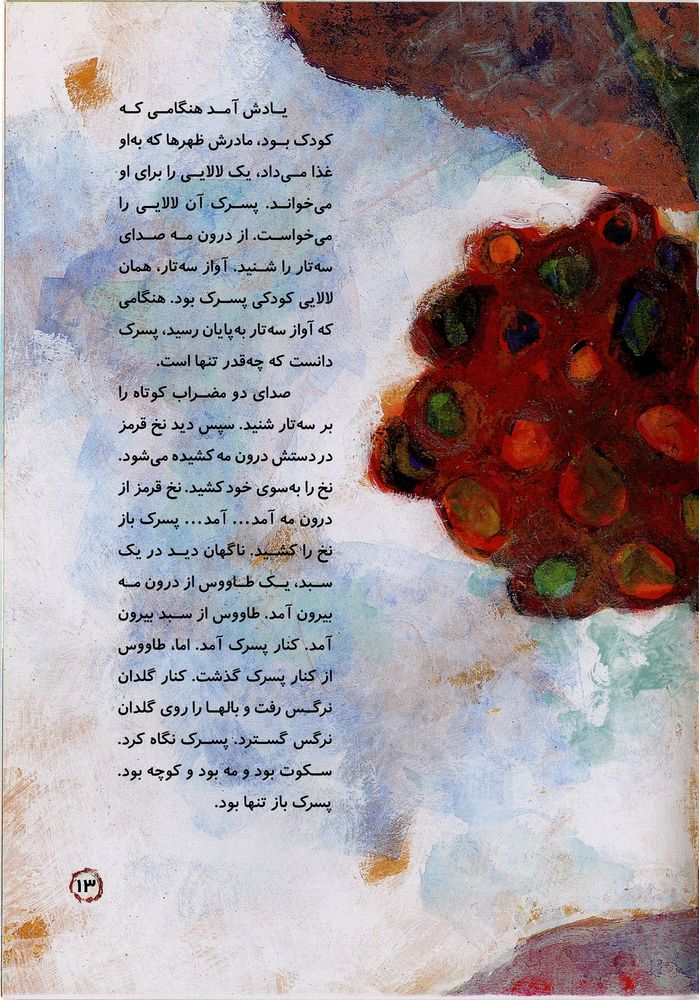 یادش آمد هنگامی که
کودک بود، مادرش ظهرها که به‌او
غذا می‌داد، یک لالایی را برای او
می‌خواند. پسرک آن لالایی را
می‌خواست. از درون مه صدای
سه‌تار را شنید. آواز سه‌تار، همان
لالایی کودکی پسرک بود. هنگامی
که آواز سه‌تار به‌پایان رسید، پسرک
دانست که چه‌قدر تنها است.
صدای دو مضراب کوتاه را
بر سه‌تار شنید. سپس دید نخ قرمز
در دستش درون مه کشیده می‌شود.
نخ را به‌سوی خود کشید. نخ قرمز از
درون مه آمد... آمد... پسرک باز
نخ را کشید. ناگهان دید در یک
سبد، یک طاووس از درون مه
بیرون آمد. طاووس از سبد بیرون
آمد. کنار پسرک آمد. اما، طاووس
از کنار پسرک گذشت. کنار گلدان
نرگس رفت و بالها را روی گلدان
نرگس گسترد. پسرک نگاه کرد.
سکوت بود و مه بود و کوچه بود.
پسرک باز تنها بود.
۱۳